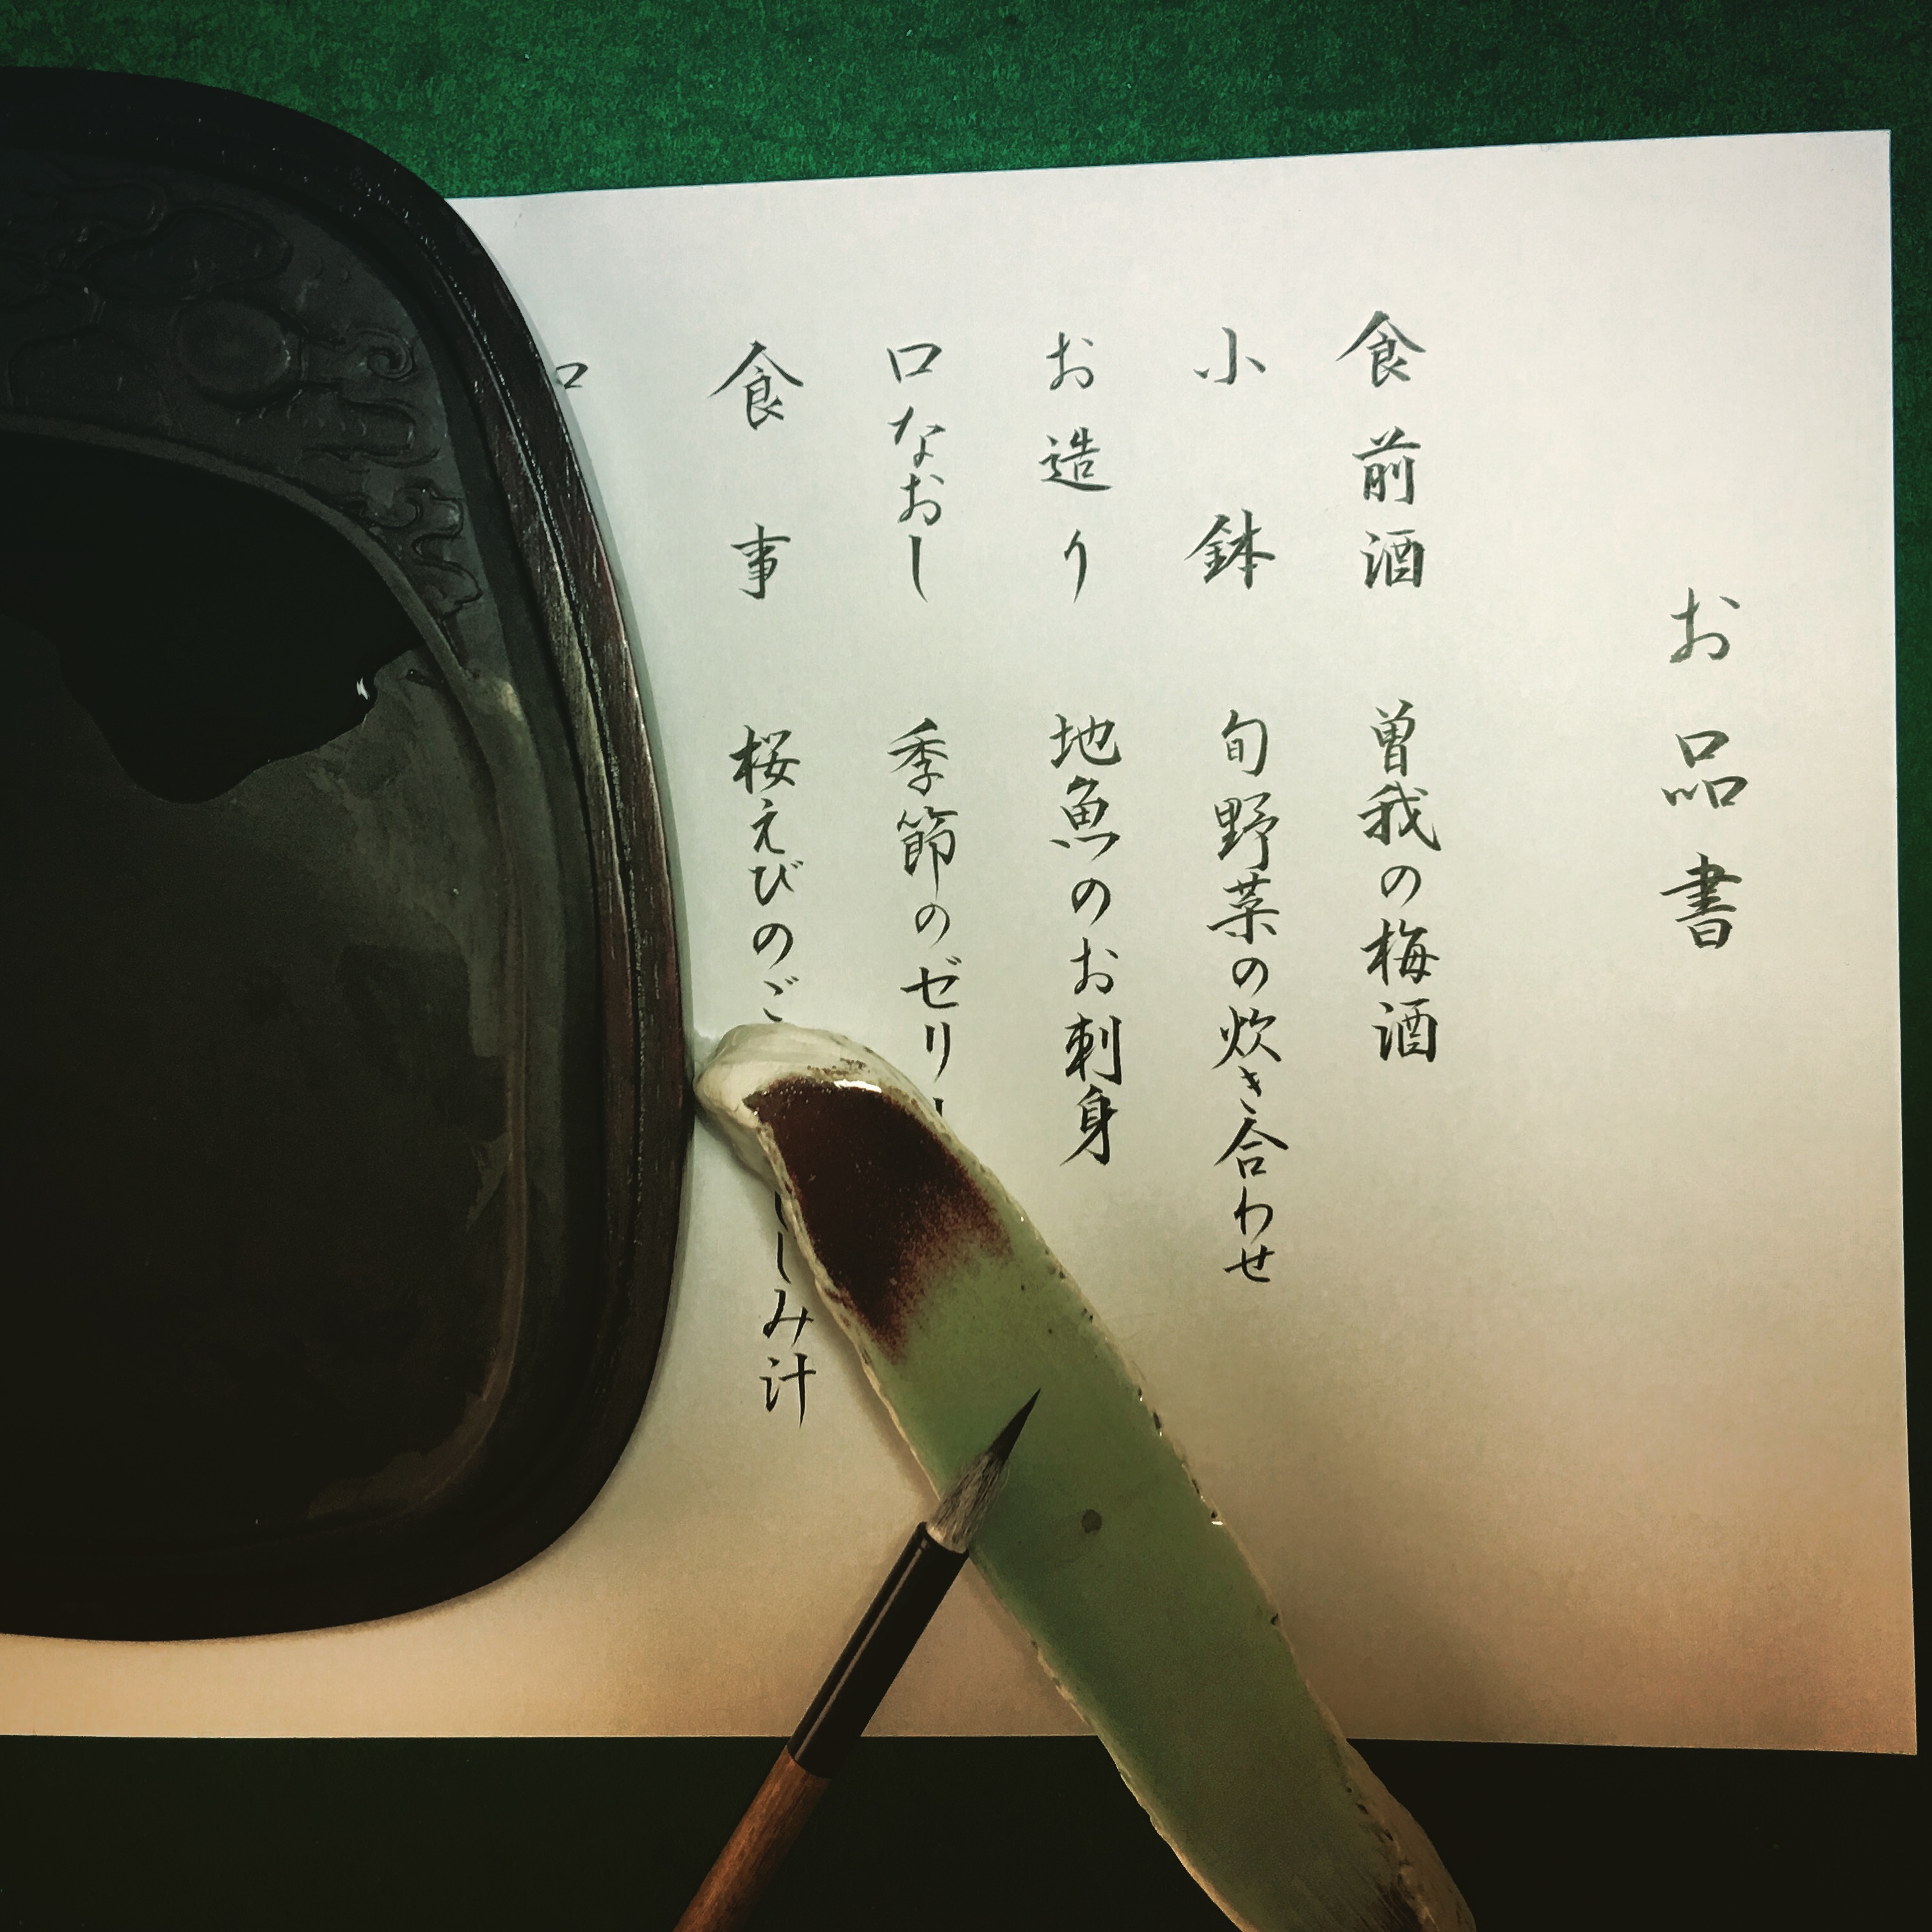 お品書
食前酒 曽我の梅酒
小鉢 旬野菜の炊き合わせ
お造り 地魚のお刺身
口なおし 季節のゼリー
食事 桜えびのご
しみ汁